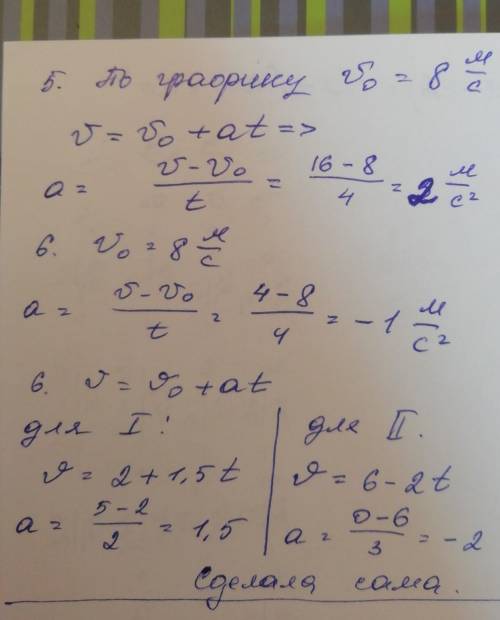 5. По графику v₀ = 8 м/с
v = v₀ + at =>
a = (v - v₀)/t = (16 - 8)/4 = 2 м/с²
6. v₀ = 8 м/с
a = (v - v₀)/t = (4 - 8)/4 = -1 м/с²
6. v = v₀ + at
для I:
v = 2 + 1,5t
a = (5 - 2)/2 = 1,5
для II.
v = 6 - 2t
a = (0 - 6)/3 = -2
Сделала сама.